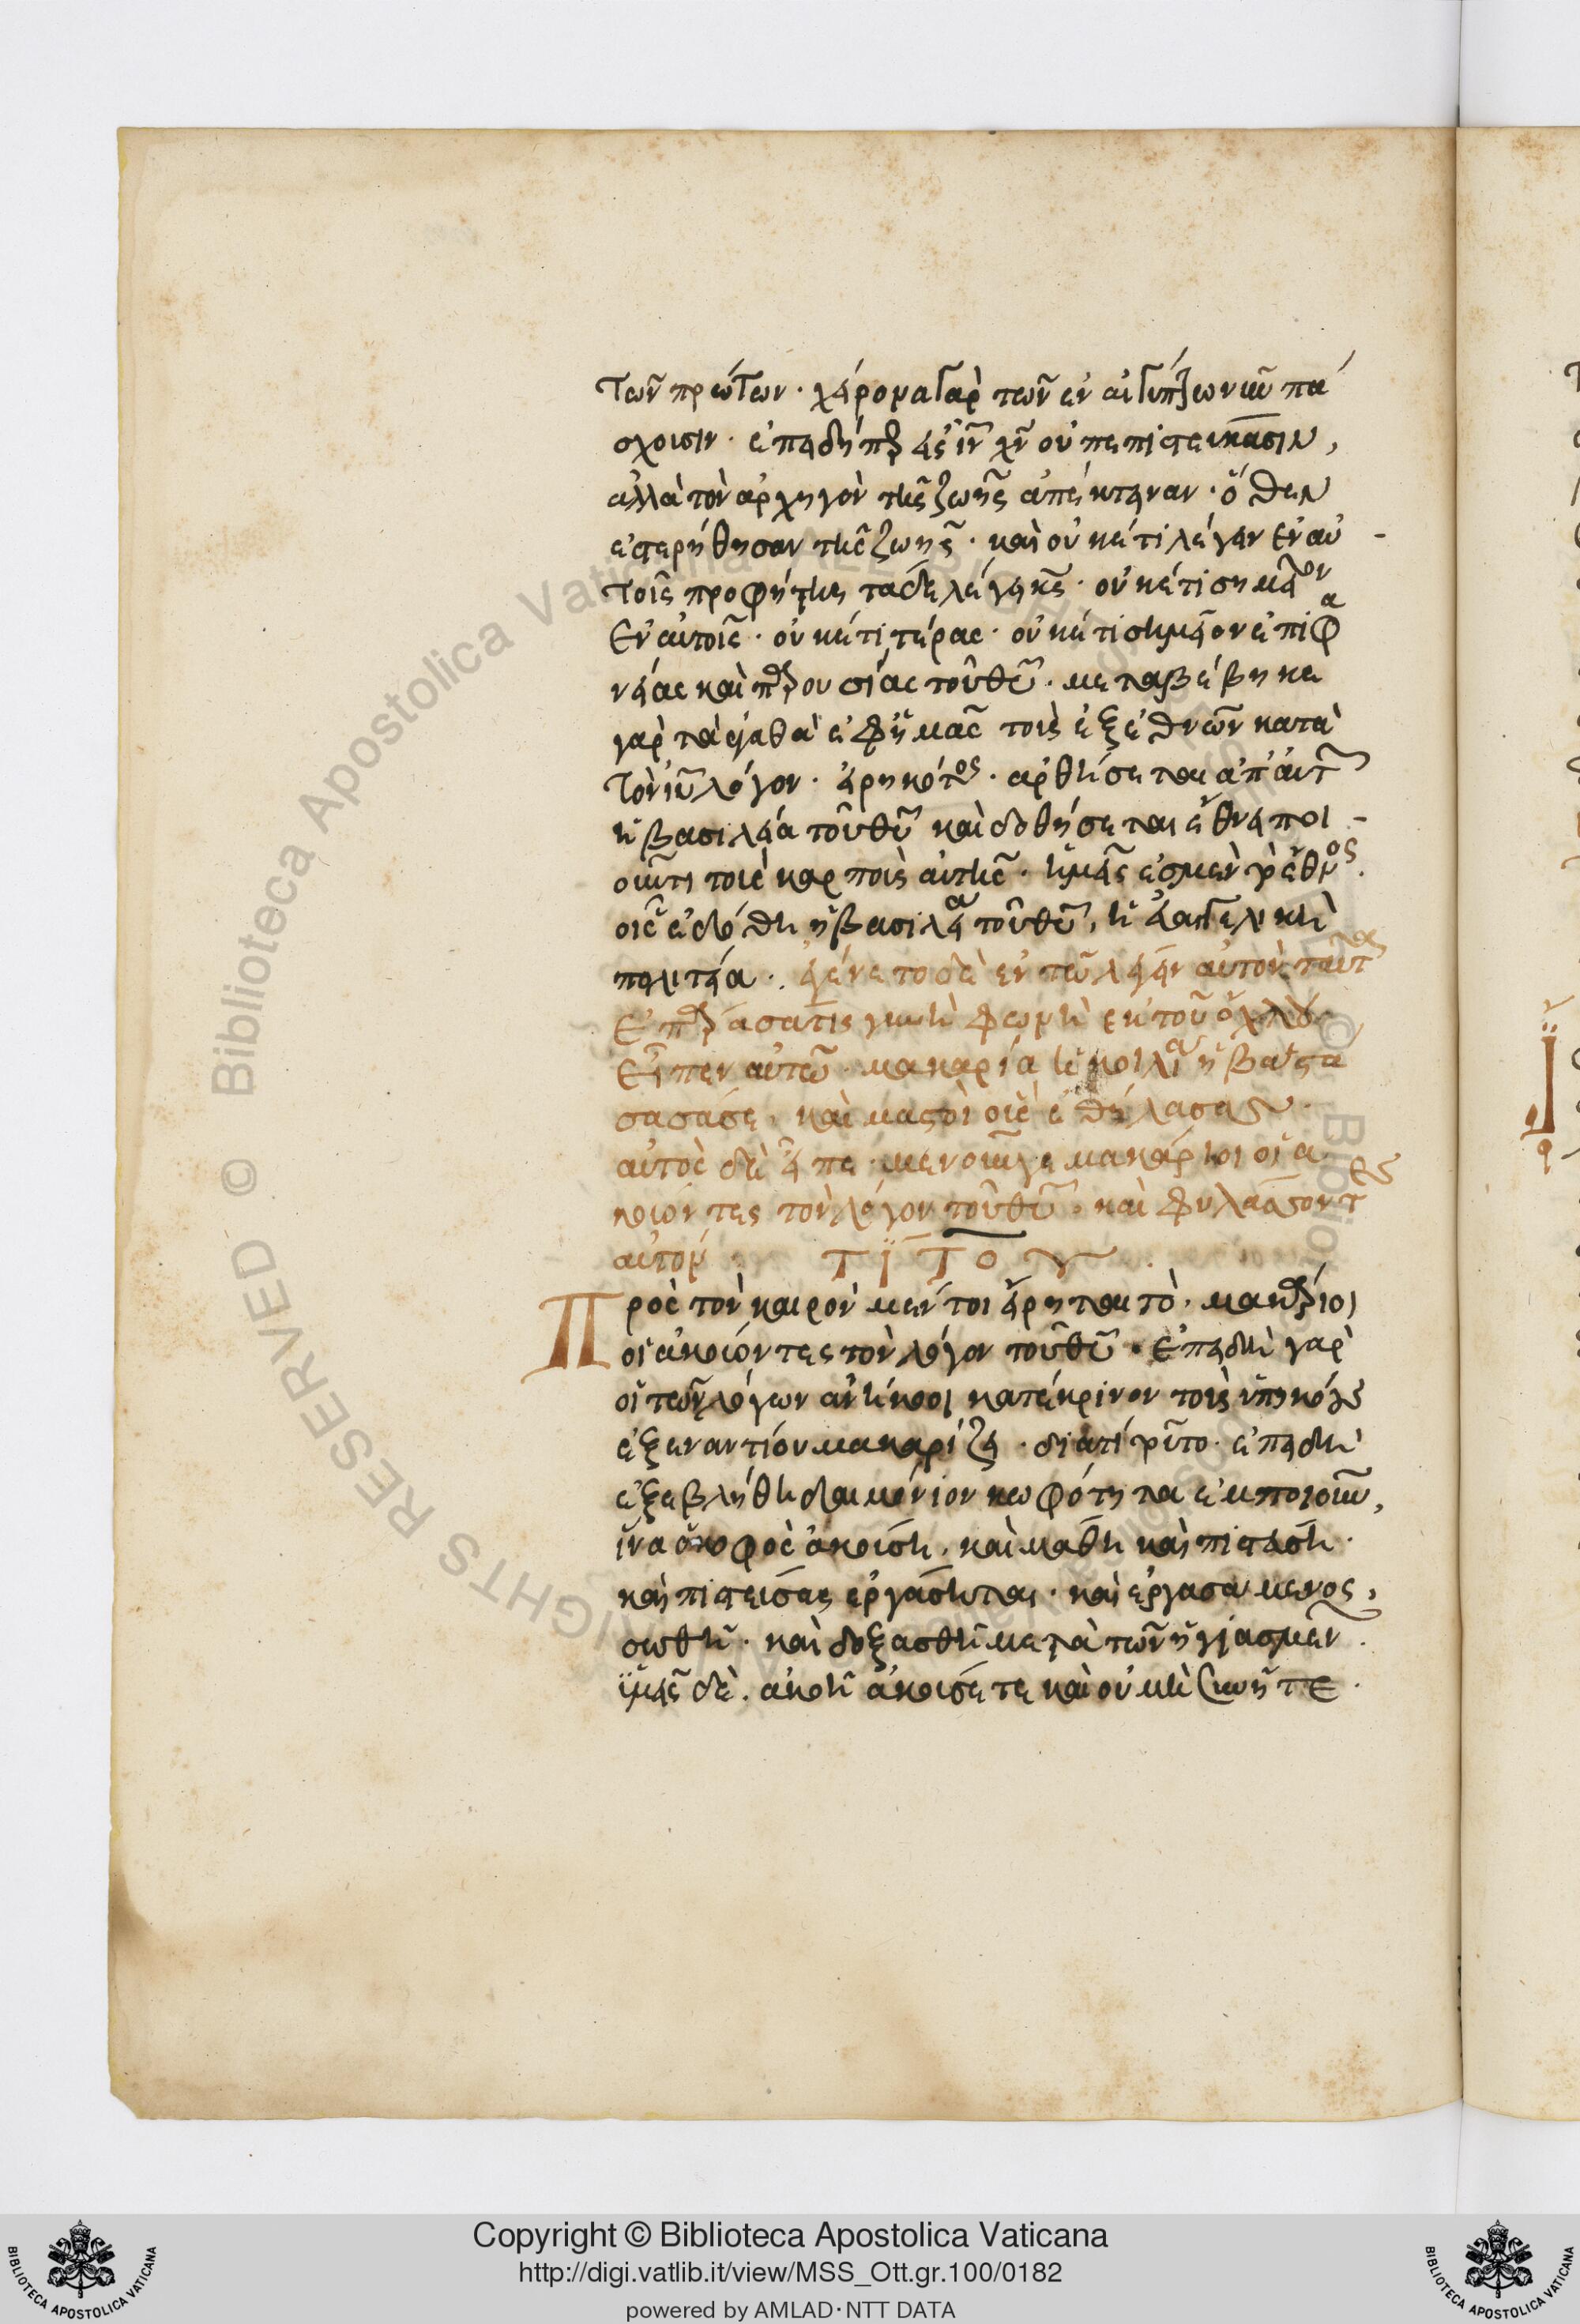 τῶν πρώτων· χείρονα γὰρ τῶν ἐν αἰγύπτω νῦν πά
σχουσιν· ἐπειδήπερ εἰς ἰν χν οὐ πεπιστεύκασιν,
ἀλλὰ τὸν ἀρχηγὸν τῆς ζωῆς ἀπέκτειναν· ὅθεν
ἐστερήθησαν τῆς ζωῆς· καὶ οὐκέτι λέγει ἐν αὐ-
τοῖς προφήτης τάδε λέγει κς· οὐκέτι σημεῖον
ἐν αὐτοῖς· οὐκέτι τέρας· οὐκέτι σημεῖον ἐπιφα
νείας καὶ παρουσίας τοῦ θυ· μεταβέβηκε
γὰρ τὰ ἀγαθὰ ἐφ' ἡμᾶς τοὺς ἐξ ἐθνῶν κατὰ
τὸν ιυ λόγον· εἰρηκότος· ἀρθήσεται ἀπ' αὐτῶν
ἡ βασιλεία τοῦ θυ καὶ δοθήσεται ἔθνει ποι-
οῦντι τοὺς καρποὺς αὐτῆς· ἡμεῖς ἐσμὲν τὸ ἔθνος·
οἷς ἐδόθη ἡ βασιλεία τοῦ θυ, ἡ εὐαγγελικὴ
πολιτεία· ἐγένετο δὲ ἐν τῶ λέγειν αὐτὸν ταῦτα
ἐπάρασά τις γυνὴ φωνὴν ἐκ τοῦ ὄχλου
εἶπεν αὐτῶ· μακαρία ἡ κοιλία ἡ βαστά
σασά σε, καὶ μαστοὶ οὓς ἐθήλασας·
αὐτὸς δὲ εἶπε· μενοῦνγε μακάριοι οἱ ἀ
κούοντες τὸν λόγον τοῦ θυ· καὶ φυλάσσοντες
αὐτόν·
ΤΙΤΟΥ
Πρὸς τὸν καιρὸν μέντοι εἴρηται τὸ, μακάριοι
οἱ ἀκούοντες τὸν λόγον τοῦ θυ· ἐπειδὴ γὰρ
οἱ τῶν λόγων ἀνήκοοι κατέκρινον τοὺς ὑπηκόους
ἐξεναντίου μακαρίζει· διατί τοῦτο· ἐπειδὴ
ἐξεβλήθη δαιμόνιον κωφότητα ἐμποιοῦν,
ἵνα ὁ κωφὸς ἀκούση, καὶ μάθη καὶ πιστεύση·
καὶ πιστεύσας ἐργάσηται· καὶ ἐργασάμενος,
σωθῆ· καὶ δοξασθῆ μετὰ τῶν ἡγιασμένων·
ὑμεῖς δὲ· ἀκοῆ ἀκούσετε καὶ οὐ μὴ συνῆτε·
Copyright © Biblioteca Apostolica Vaticana
http://digi.vatlib.it/view/MSS_Ott.gr.100/0182
powered by AMLAD·NTT DATA